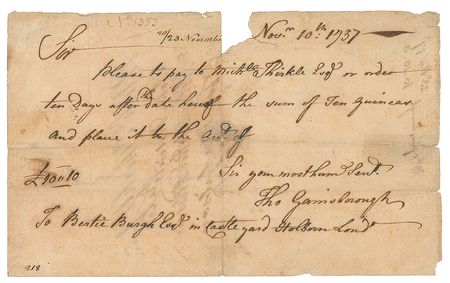 No 1353
20/23 November
Novr. 10th. 1757
Sir
Please to pay to Michl. Thirkle Esqr. or order
ten Days after Date hereof the sum of Ten Guineas
and place it to the acct. of
£10"10
Sir your most humb. Servt.
Tho Gainsborough
To Bertie Burgh Esqr. in Castle yard Holborn Londn.
218